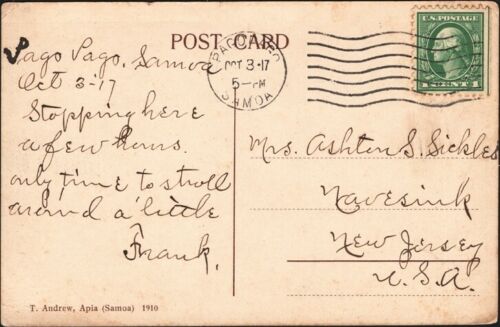 POST CARD
Pago Pago, Samoa
Oct 3-17
Stopping here
a few hours.
only time to stroll
around a little
Frank.
T. Andrew, Apia (Samoa) 1910
PAGO PAGO
OCT 3-17
5-PM
SAMOA
U.S. POSTAGE
1 CENT 1
Mrs. Ashton S. Sickles
Navesink
New Jersey
U.S.A.